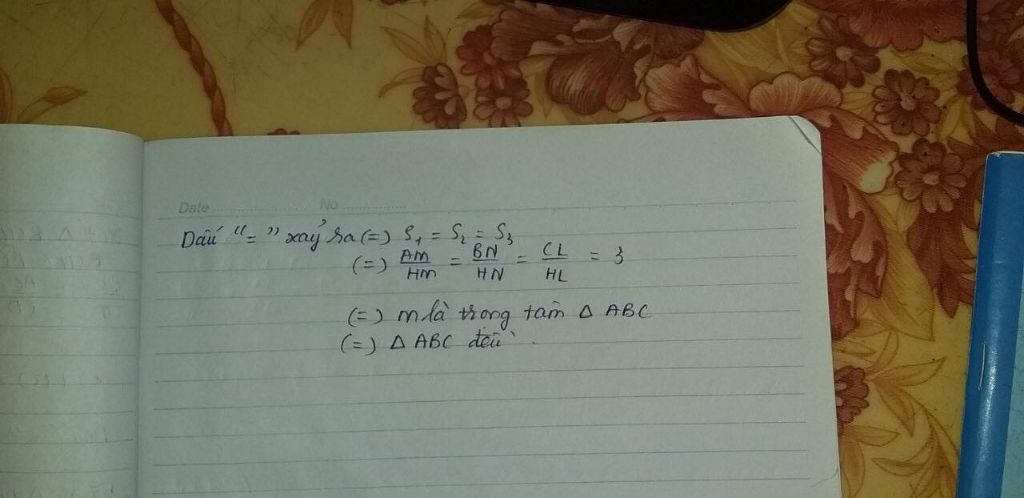 Date ................ No ................
Dấu "=" xảy ra (=) S₁ = S₂ = S₃
(=) AM/HM = BN/HN = CL/HL = 3
(=) m là trong tâm Δ ABC
(=) Δ ABC đều .